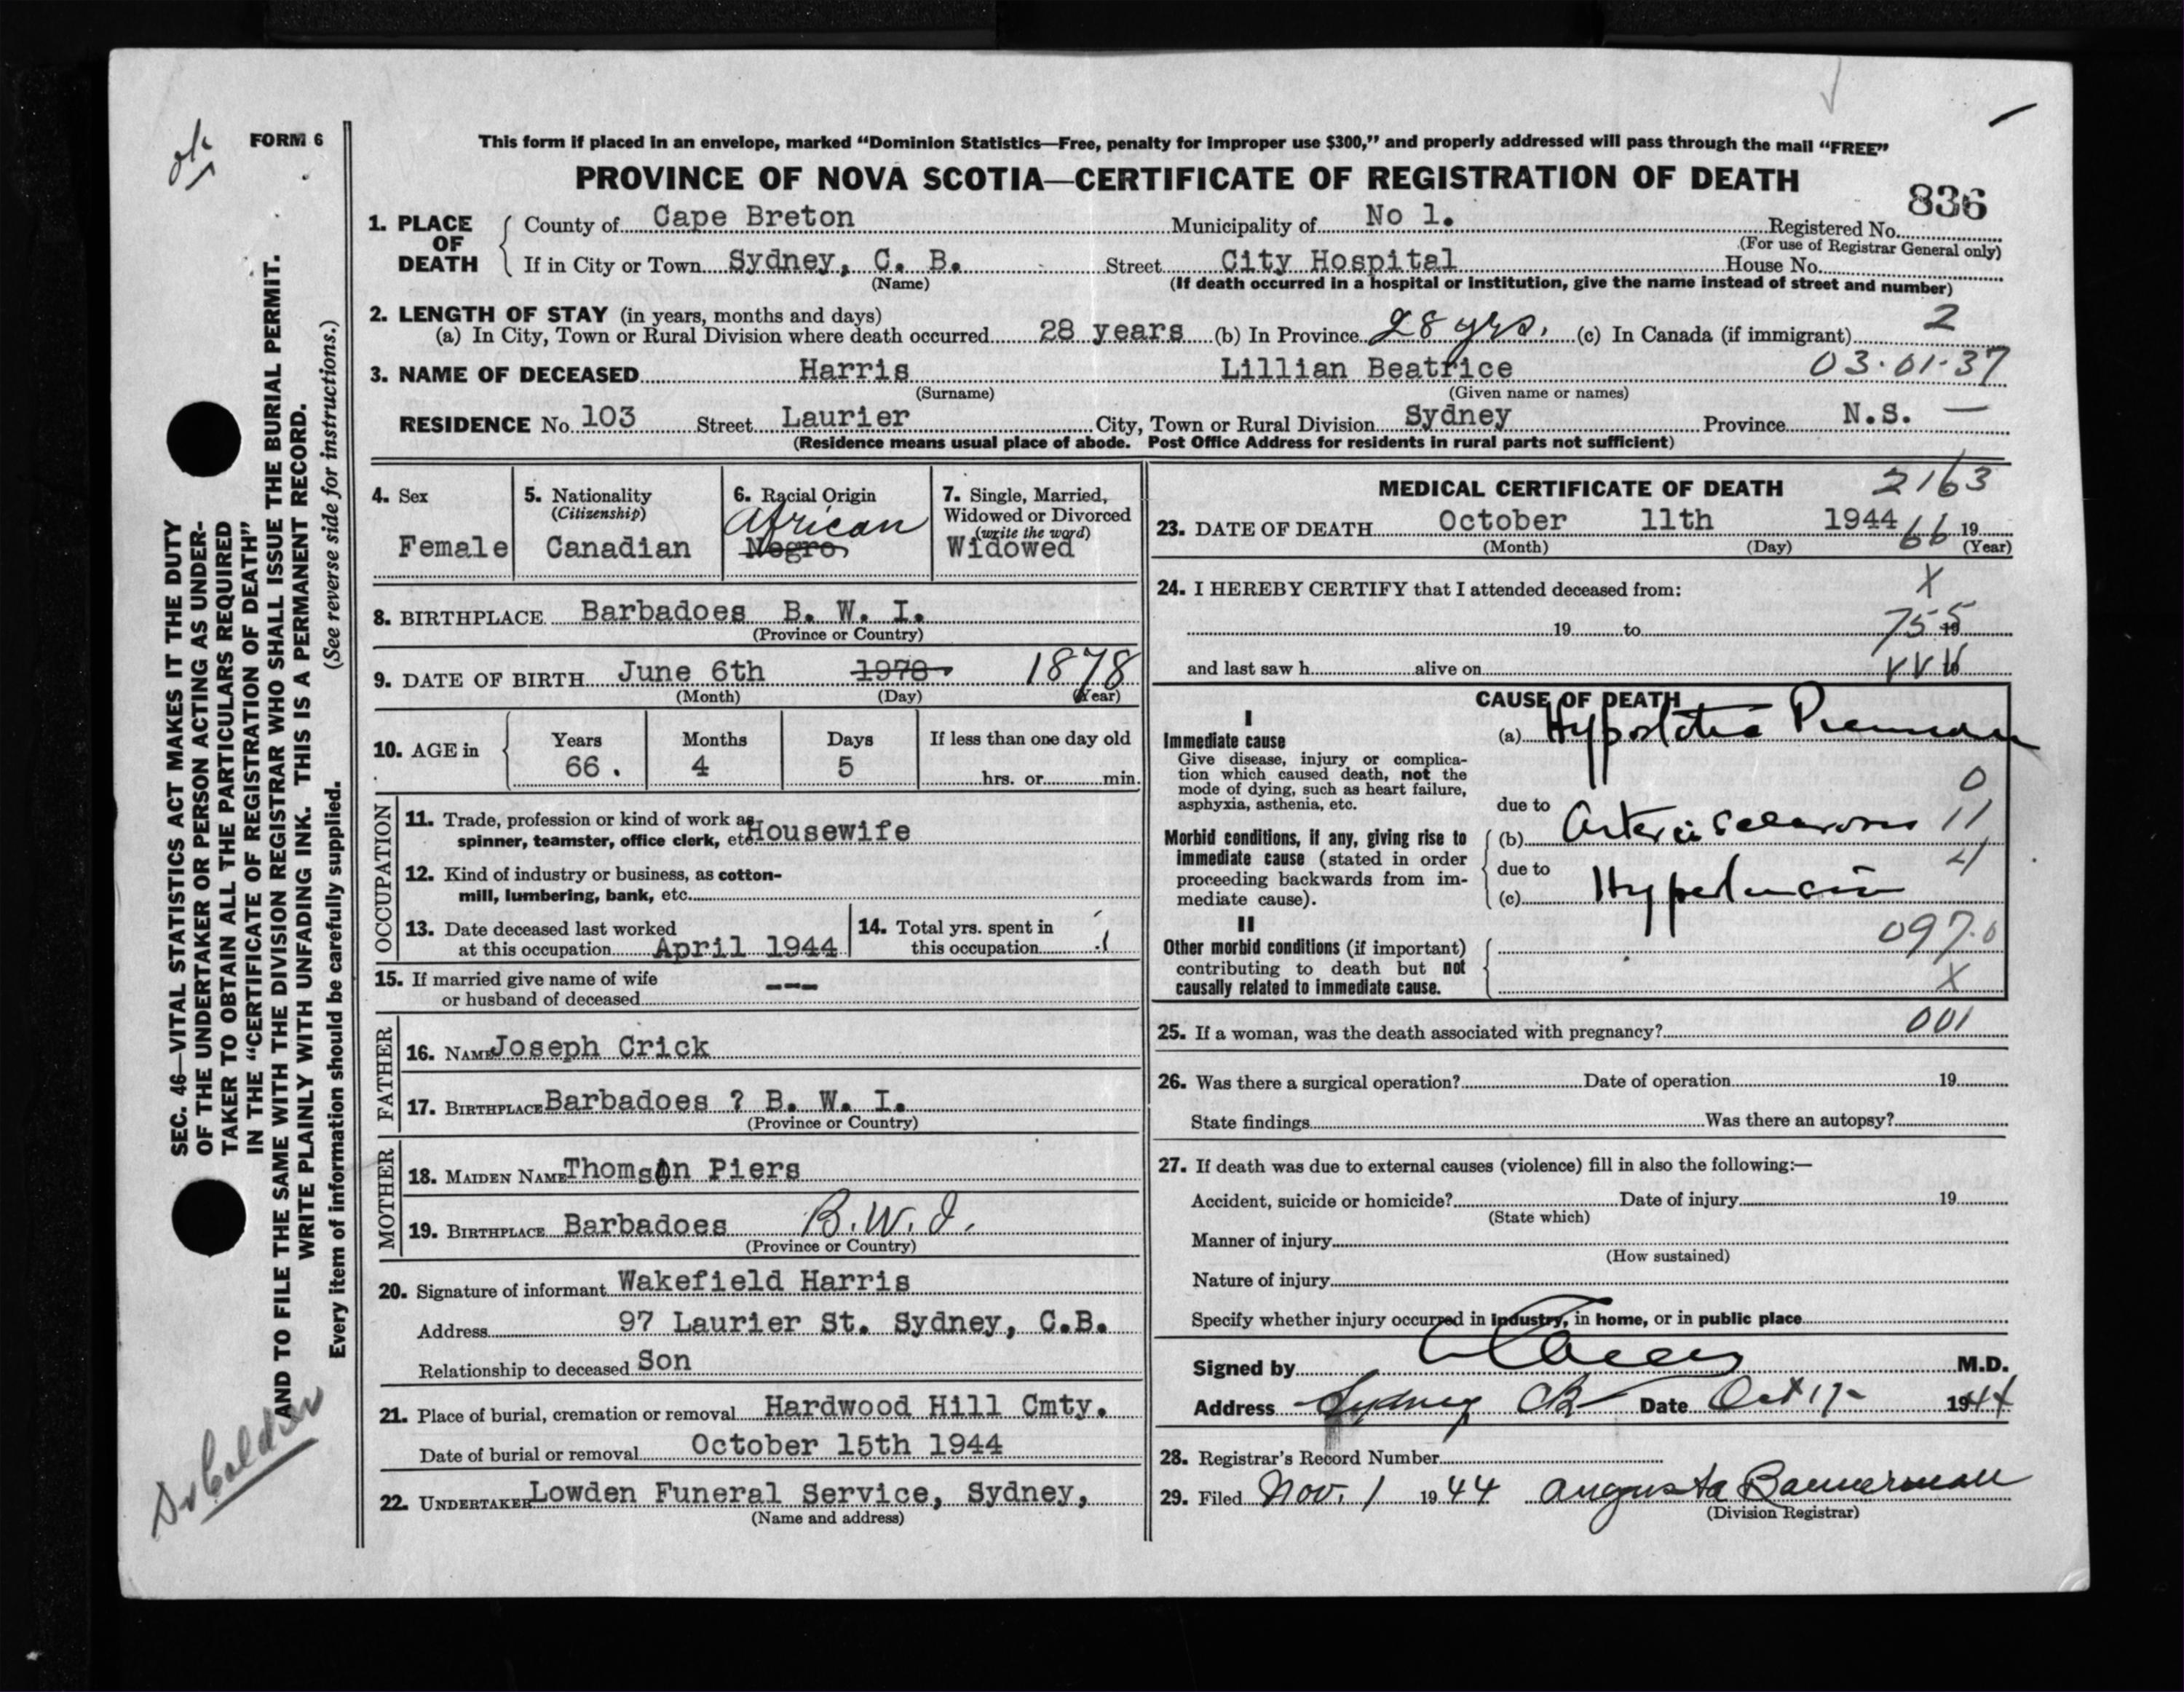 ok
FORM 6
SEC. 46—VITAL STATISTICS ACT MAKES IT THE DUTY
OF THE UNDERTAKER OR PERSON ACTING AS UNDER-
TAKER TO OBTAIN ALL THE PARTICULARS REQUIRED
IN THE "CERTIFICATE OF REGISTRATION OF DEATH"
AND TO FILE THE SAME WITH THE DIVISION REGISTRAR WHO SHALL ISSUE THE BURIAL PERMIT.
WRITE PLAINLY WITH UNFADING INK. THIS IS A PERMANENT RECORD.
Every item of information should be carefully supplied. (See reverse side for instructions.)
This form if placed in an envelope, marked "Dominion Statistics—Free, penalty for improper use $300," and properly addressed will pass through the mail "FREE"
PROVINCE OF NOVA SCOTIA—CERTIFICATE OF REGISTRATION OF DEATH
836
1. PLACE OF DEATH
County of Cape Breton Municipality of No 1. Registered No.
(For use of Registrar General only)
If in City or Town Sydney, C. B. Street City Hospital House No.
(Name) (If death occurred in a hospital or institution, give the name instead of street and number)
2. LENGTH OF STAY (in years, months and days)
2
(a) In City, Town or Rural Division where death occurred 28 years (b) In Province 28 yrs. (c) In Canada (if immigrant)
3. NAME OF DECEASED Harris Lillian Beatrice 03.01.37
(Surname) (Given name or names)
RESIDENCE No. 103 Street Laurier City, Town or Rural Division Sydney Province N.S. —
(Residence means usual place of abode. Post Office Address for residents in rural parts not sufficient)
4. Sex
Female
5. Nationality
(Citizenship)
Canadian
6. Racial Origin
African
Negro
7. Single, Married,
Widowed or Divorced
(write the word)
Widowed
8. BIRTHPLACE Barbadoes B. W. I.
(Province or Country)
9. DATE OF BIRTH June 6th 1978 1878
(Month) (Day) (Year)
10. AGE in
Years Months Days If less than one day old
66. 4 5 hrs. or min.
OCCUPATION
11. Trade, profession or kind of work as
spinner, teamster, office clerk, etc. Housewife
12. Kind of industry or business, as cotton-
mill, lumbering, bank, etc.
13. Date deceased last worked
at this occupation April 1944
14. Total yrs. spent in
this occupation
15. If married give name of wife
or husband of deceased ---
FATHER
16. NAME Joseph Crick
17. BIRTHPLACE Barbadoes ? B. W. I.
(Province or Country)
MOTHER
18. MAIDEN NAME Thomson Piers
19. BIRTHPLACE Barbadoes B.W.I.
(Province or Country)
20. Signature of informant Wakefield Harris
Address 97 Laurier St. Sydney, C.B.
Relationship to deceased Son
21. Place of burial, cremation or removal Hardwood Hill Cmty.
Date of burial or removal October 15th 1944
22. UNDERTAKER Lowden Funeral Service, Sydney,
(Name and address)
MEDICAL CERTIFICATE OF DEATH
2163
23. DATE OF DEATH October 11th 1944 66 19
(Month) (Day) (Year)
24. I HEREBY CERTIFY that I attended deceased from: X
19 to 755 19
and last saw h alive on 19
CAUSE OF DEATH
I
Immediate cause
Give disease, injury or complica-
tion which caused death, not the
mode of dying, such as heart failure,
asphyxia, asthenia, etc.
(a) Hypostatic
0
due to
Morbid conditions, if any, giving rise to
immediate cause (stated in order
proceeding backwards from im-
mediate cause).
(b) Arteriosclerosis 11
due to 4
(c) Hypertension
II
Other morbid conditions (if important)
contributing to death but not
causally related to immediate cause.
097.0
X
25. If a woman, was the death associated with pregnancy? 001
26. Was there a surgical operation? Date of operation 19
State findings Was there an autopsy?
27. If death was due to external causes (violence) fill in also the following:—
Accident, suicide or homicide? Date of injury 19
(State which)
Manner of injury
(How sustained)
Nature of injury
Specify whether injury occurred in industry, in home, or in public place
Signed by M.D.
Address Sydney CB Date Oct 17- 1944
28. Registrar's Record Number
29. Filed Nov. 1 1944 Augusta Bannerman
(Division Registrar)